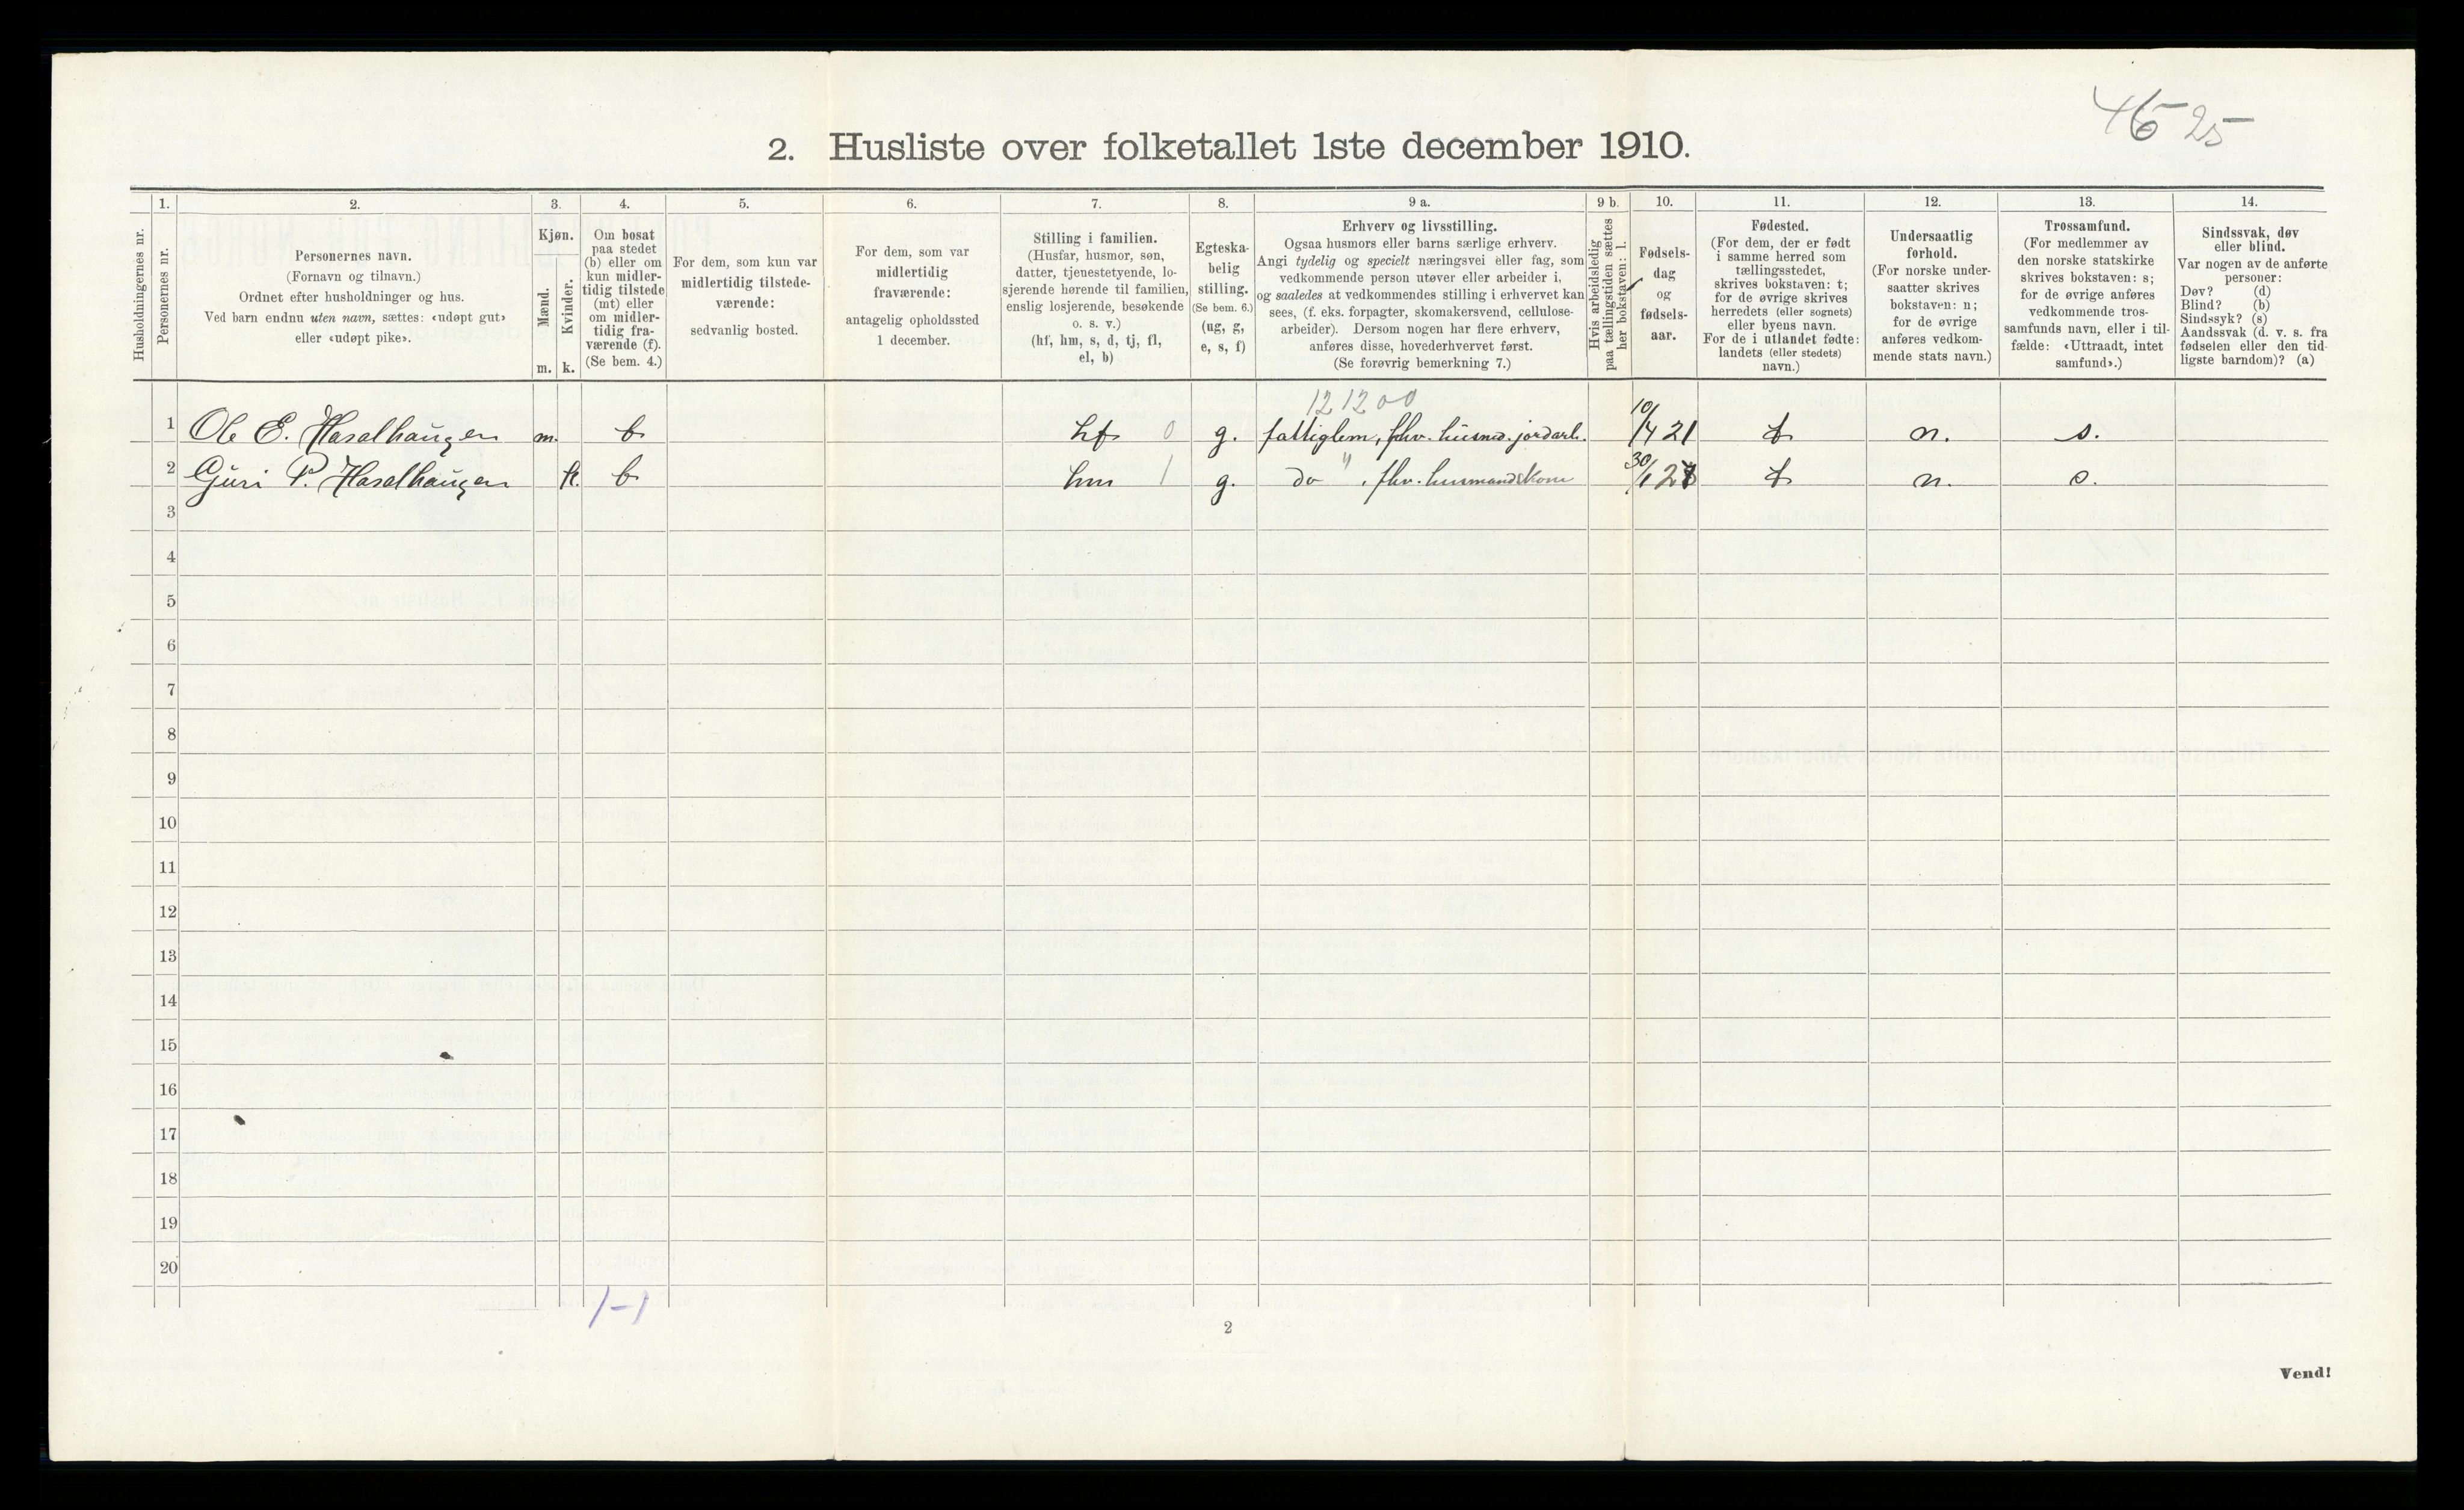 46 25
2. Husliste over folketallet 1ste december 1910.
Husholdningernes nr.
1. Personernes nr.
2. Personernes navn.
(Fornavn og tilnavn.)
Ordnet efter husholdninger og hus.
Ved barn endnu uten navn, sættes: «udøpt gut»
eller «udøpt pike».
3. Kjøn.
Mænd. Kvinder.
m. k.
4. Om bosat
paa stedet
(b) eller om
kun midler-
tidig tilstede
(mt) eller
om midler-
tidig fra-
værende (f).
(Se bem. 4.)
5. For dem, som kun var
midlertidig tilstede-
værende:
sedvanlig bosted.
6. For dem, som var
midlertidig
fraværende:
antagelig opholdssted
1 december.
7. Stilling i familien.
(Husfar, husmor, søn,
datter, tjenestetyende, lo-
sjerende hørende til familien,
enslig losjerende, besøkende
o. s. v.)
(hf, hm, s, d, tj, fl,
el, b)
8. Egteska-
belig
stilling.
(Se bem. 6.)
(ug, g,
e, s, f)
9 a. Erhverv og livsstilling.
Ogsaa husmors eller barns særlige erhverv.
Angi tydelig og specielt næringsvei eller fag, som
vedkommende person utøver eller arbeider i,
og saaledes at vedkommendes stilling i erhvervet kan
sees, (f. eks. forpagter, skomakersvend, cellulose-
arbeider). Dersom nogen har flere erhverv,
anføres disse, hovederhvervet først.
(Se forøvrig bemerkning 7.)
9 b. Hvis arbeidsledig
paa tællingstiden sættes
her bokstaven: l.
10. Fødsels-
dag
og
fødsels-
aar.
11. Fødested.
(For dem, der er født
i samme herred som
tællingsstedet,
skrives bokstaven: t;
for de øvrige skrives
herredets (eller sognets)
eller byens navn.
For de i utlandet fødte:
landets (eller stedets)
navn.)
12. Undersaatlig
forhold.
(For norske under-
saatter skrives
bokstaven: n;
for de øvrige
anføres vedkom-
mende stats navn.)
13. Trossamfund.
(For medlemmer av
den norske statskirke
skrives bokstaven: s;
for de øvrige anføres
vedkommende tros-
samfunds navn, eller i til-
fælde: «Uttraadt, intet
samfund».)
14. Sindssvak, døv
eller blind.
Var nogen av de anførte
personer:
Døv? (d)
Blind? (b)
Sindssyk? (s)
Aandssvak (d. v. s. fra
fødselen eller den tid-
ligste barndom)? (a)
12 12 00
1 Ole E. Haselhaugen m. b hf 0 g. fattiglem, fhv. husmd. jordarb. 10/4 21 t n. s.
2 Guri P. Haselhaugen k. b hm 1 g. do " , fhv. husmandskone 30/1 27 t n. s.
3
4
5
6
7
8
9
10
11
12
13
14
15
16
17
18
19
20
1-1
2
Vend!